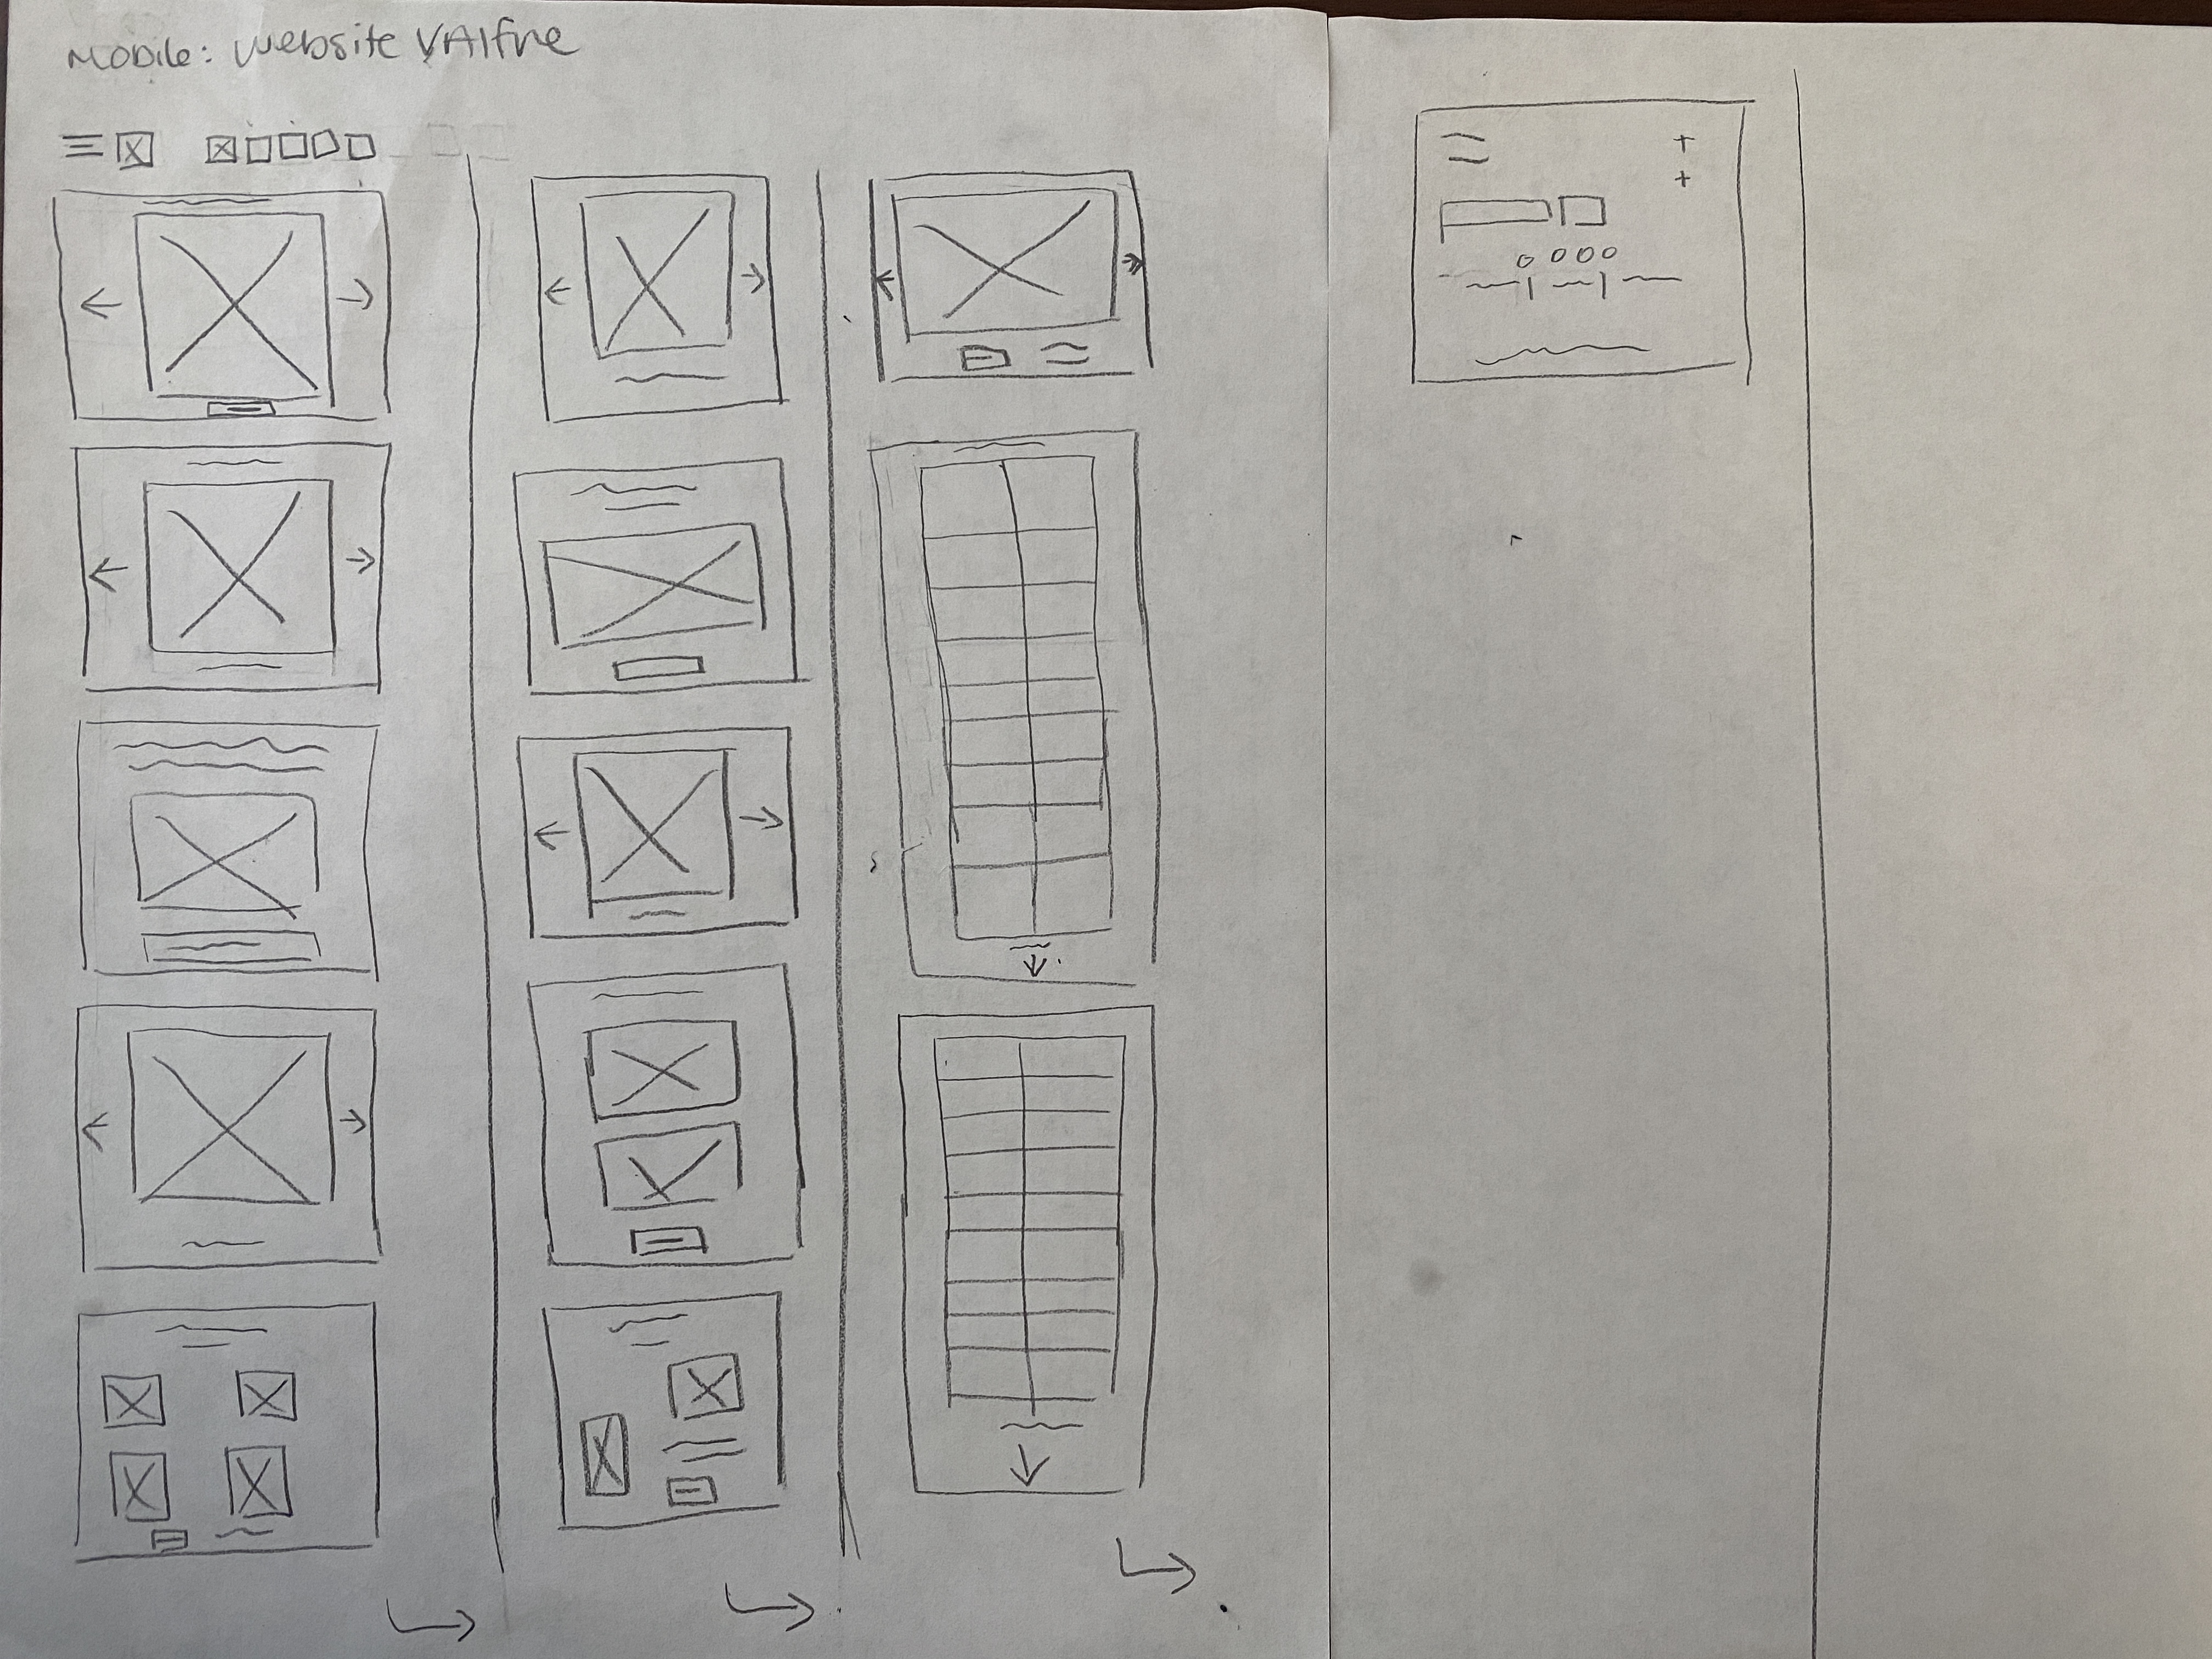 Mobile: website Valfré